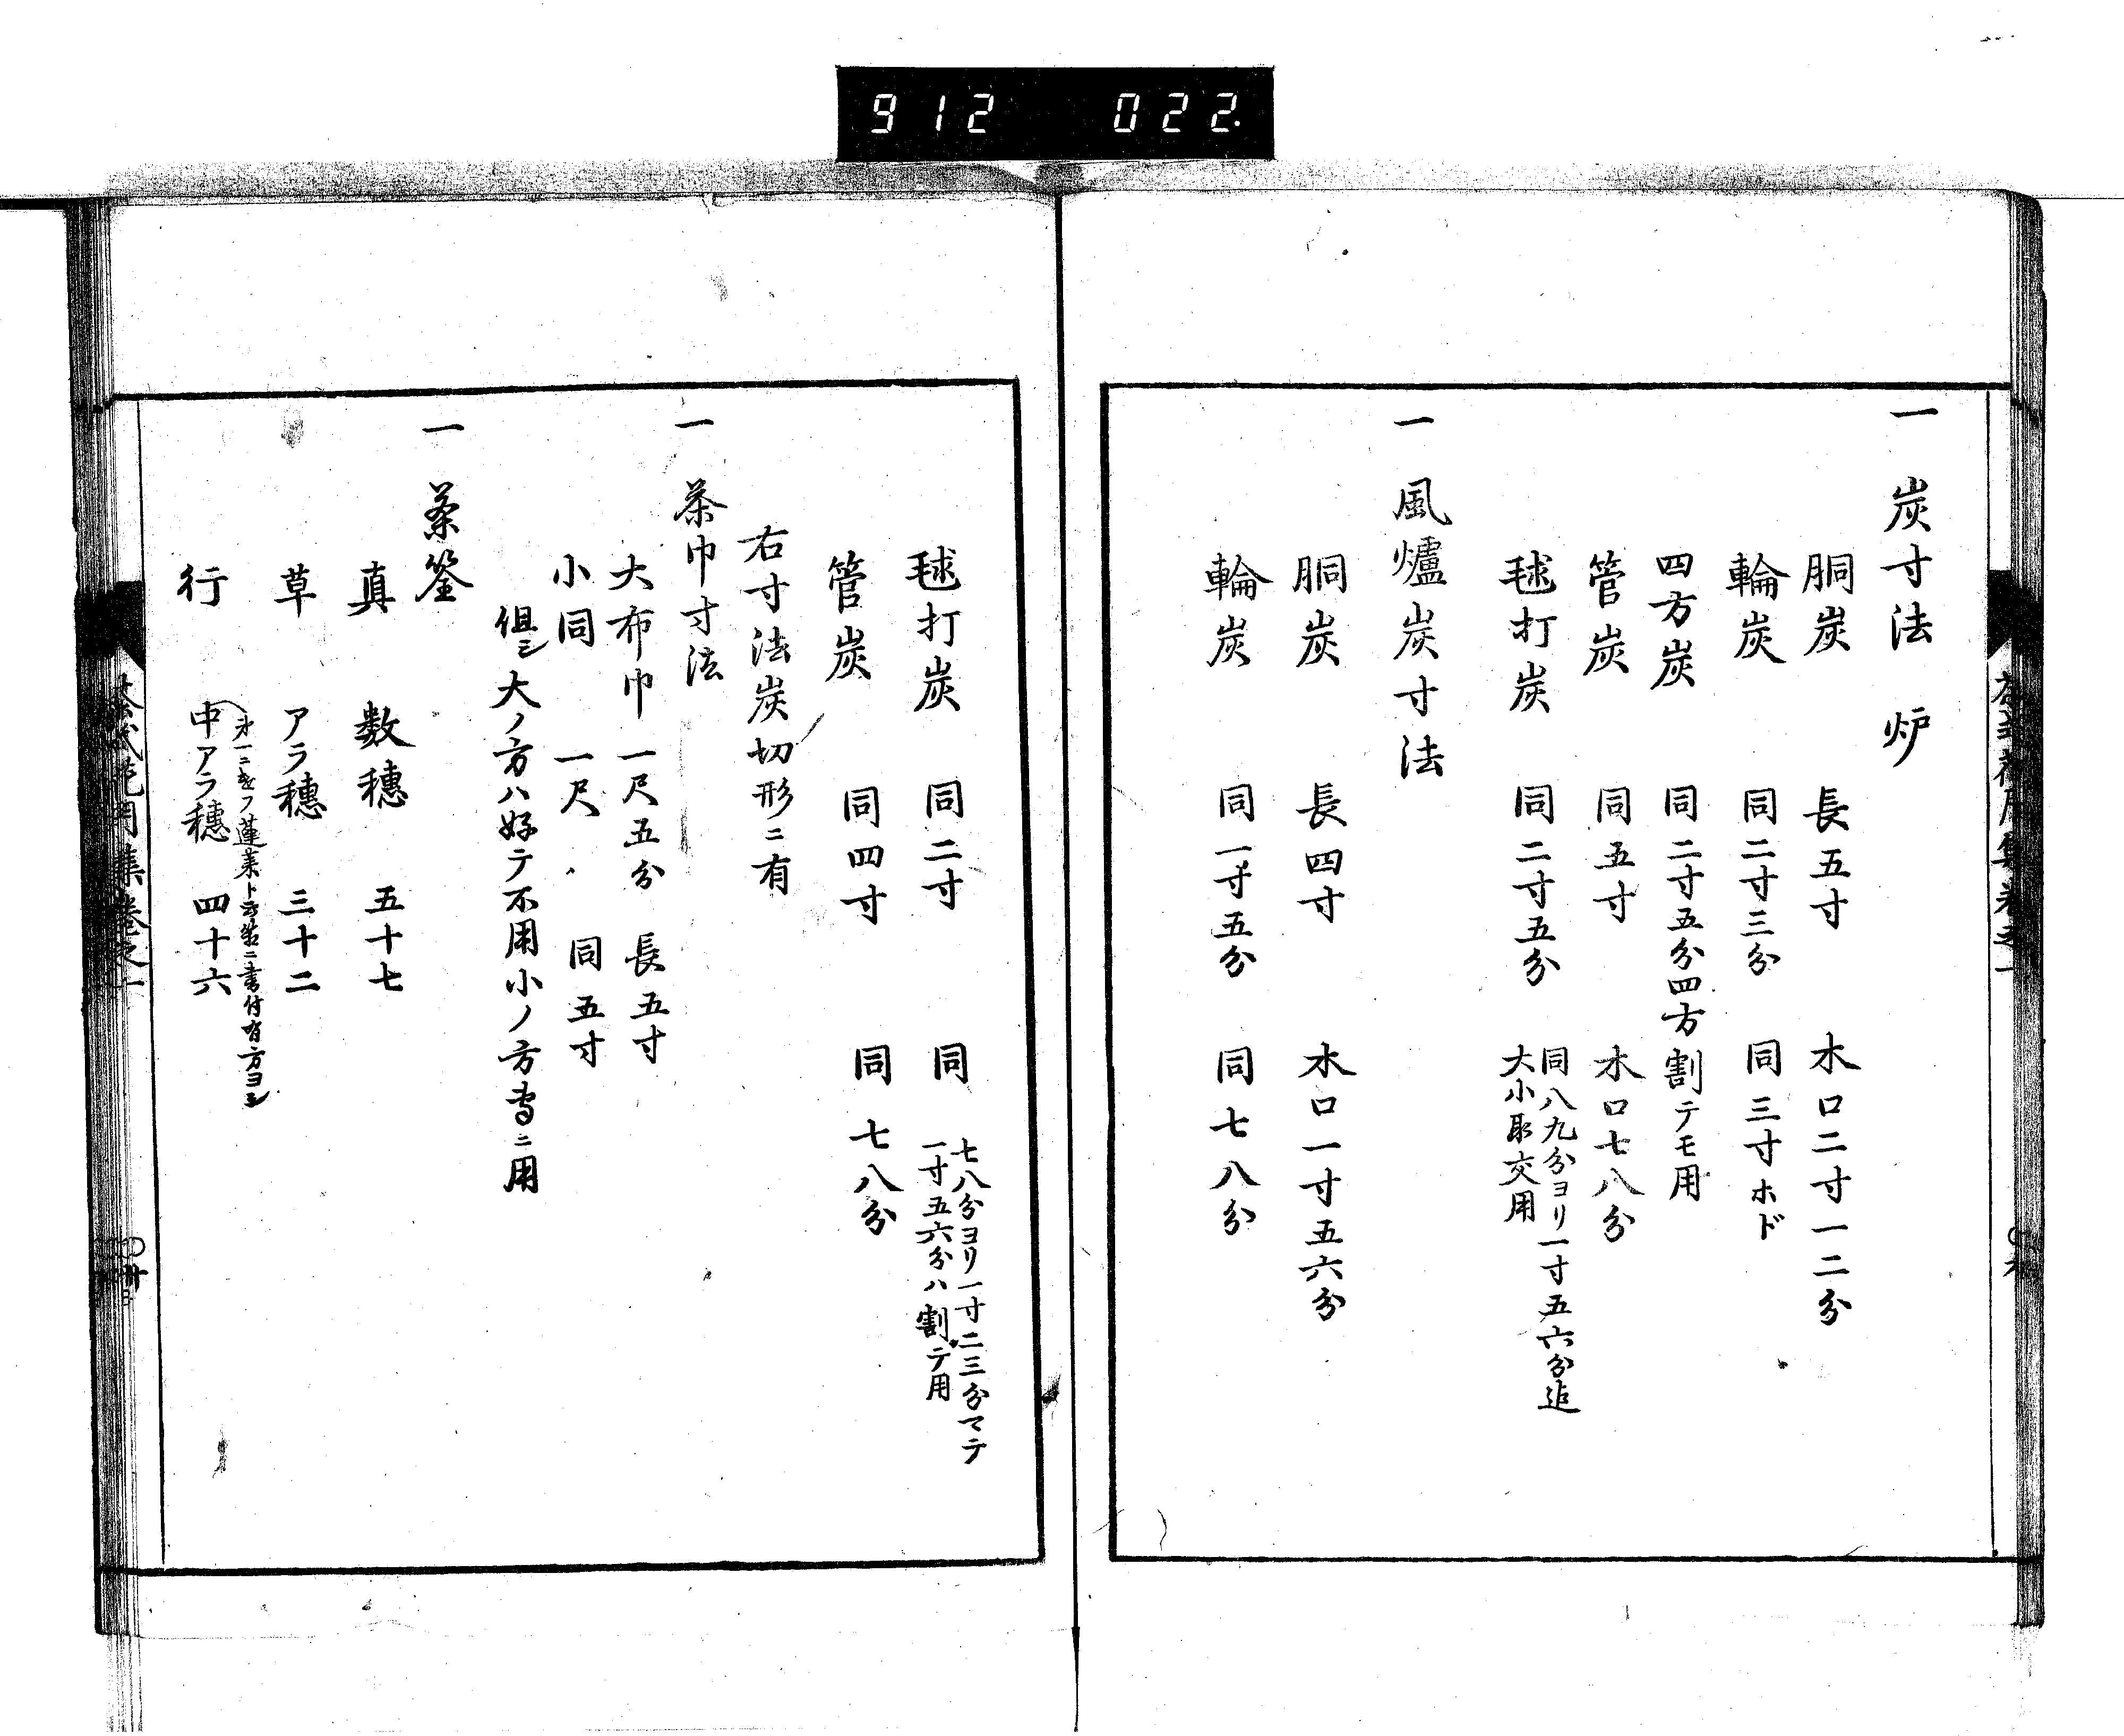 912 022.
一 炭寸法 炉
胴炭 長五寸 木口二寸一二分
輪炭 同二寸三分 同三寸ホド
四方炭 同二寸五分四方 割テモ用
管炭 同五寸 木口七八分
毬打炭 同二寸五分 同八九分ヨリ一寸五六分迄
大小取交用
一 風爐炭寸法
胴炭 長四寸 木口一寸五六分
輪炭 同一寸五分 同七八分
毬打炭 同二寸 同 七八分ヨリ一寸二三分マテ
一寸五六分ハ割テ用
管炭 同四寸 同七八分
右寸法炭切形ニ有
一 茶巾寸法
大布巾 一尺五分 長五寸
小同 一尺 同五寸
但シ大ノ方ハ好テ不用小ノ方ニ用
一 茶筌
真 数穂 五十七
草 アラ穂 三十二
蓮葉ト書付有方ヨシ
行 中アラ穂 四十六